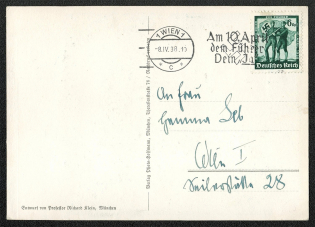 1 WIEN 1
-8.IV.38.
* c *
Am 10. April
dem Führer
Dein Ja
6
Deutsches Reich
An Frau
Gemma
Wien I
Seilerstätte 28
Verlag Photo-Hoffmann, München, Theresienstraße 74
Entwurf von Professor Richard Klein, München